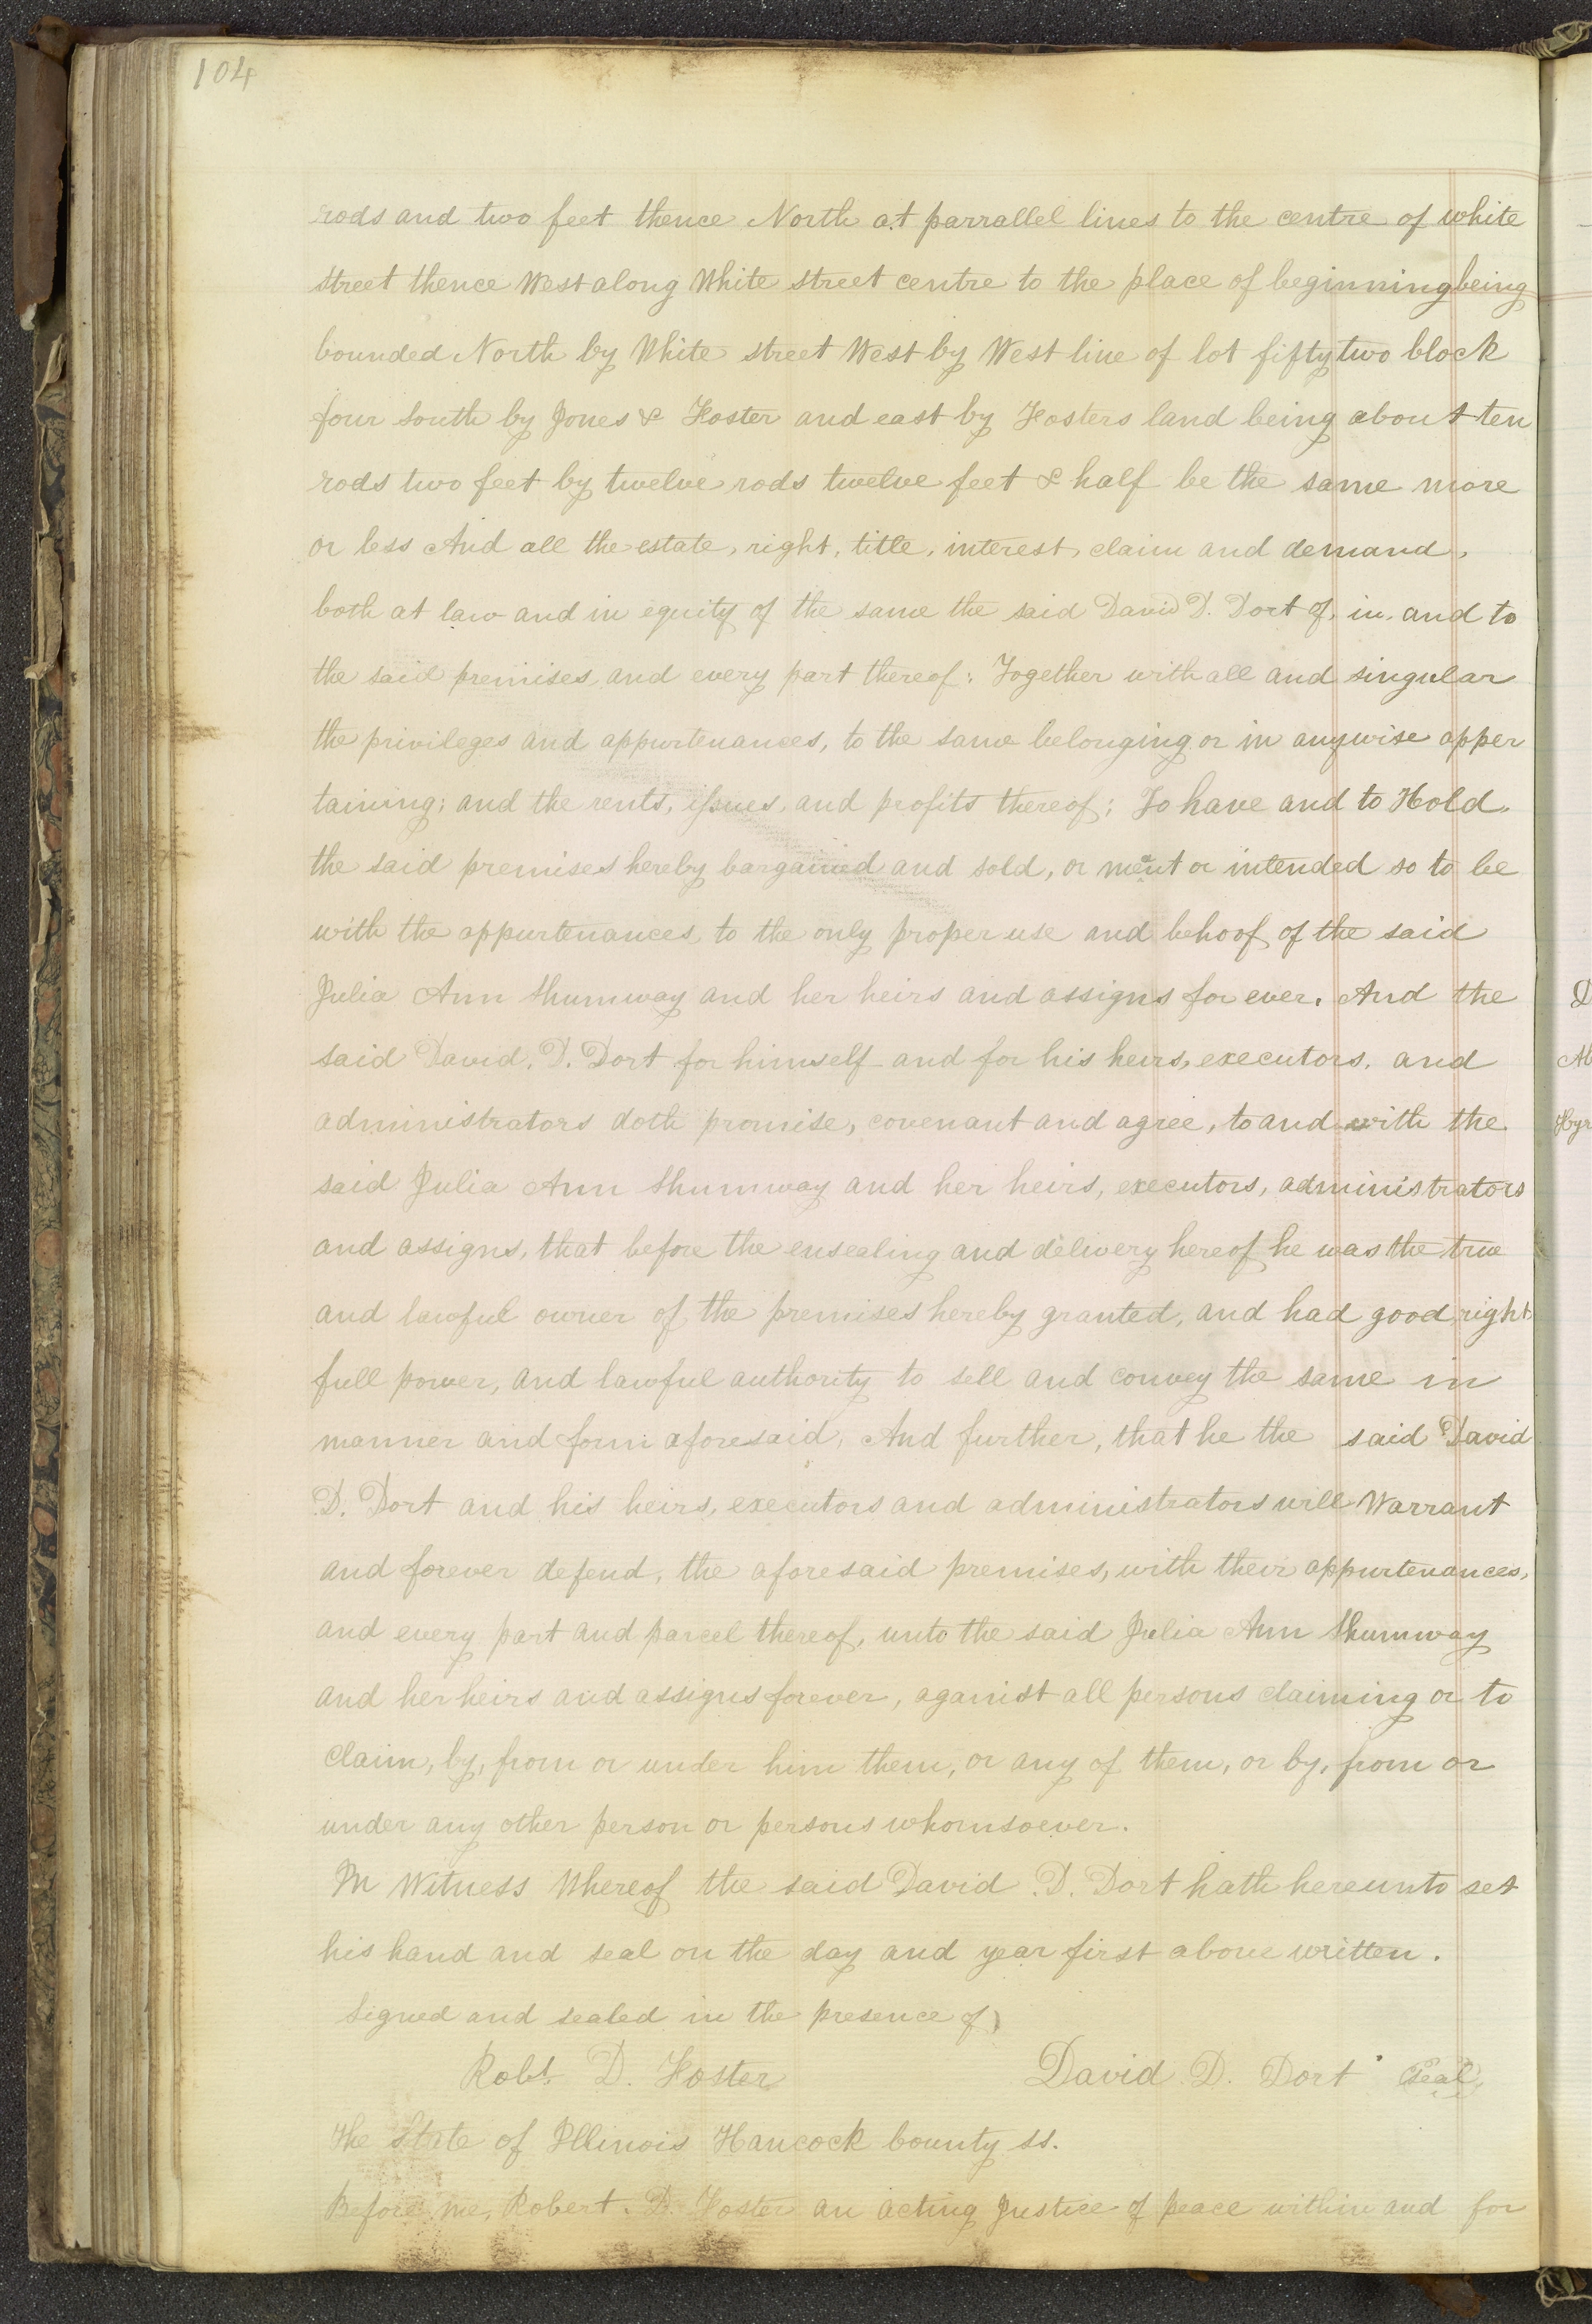 104
rods and two feet thence North at parrallel lines to the centre of white
street thence West along White street centre to the place of beginning being
bounded North by White street West by West line of lot fifty two block
four South by Jones & Foster and east by Fosters land being about ten
rods two feet by twelve rods twelve feet & half be the same more
or less And all the estate, right, title, interest, claim and demand,
both at law and in equity of the same the said David D. Dort of, in, and to
the said premises and every part thereof: Together with all and singular
the privileges and appurtenances, to the same belonging or in anywise apper
taining; and the rents, issues, and profits thereof; To have and to Hold,
the said premises hereby bargained and sold, or meant or intended so to be
with the appurtenances, to the only proper use and behoof of the said
Julia Ann Shumway and her heirs and assigns for ever. And the
said David. D. Dort for himself and for his heirs, executors, and
administrators doth promise, covenant and agree, to and with the
said Julia Ann Shumway and her heirs, executors, administrators
and assigns, that before the ensealing and delivery hereof he was the true
and lawful owner of the premises hereby granted, and had good right,
full power, and lawful authority to sell and convey the same in
manner and form aforesaid, And further, that he the said David
D. Dort and his heirs, executors and administrators will Warrant
and forever defend, the aforesaid premises, with their appurtenances,
and every part and parcel thereof, unto the said Julia Ann Shumway
and her heirs and assigns forever, against all persons claiming or to
claim, by, from or under him them, or any of them, or by, from or
under any other person or persons whomsoever.
In Witness Whereof the said David D. Dort hath hereunto set
his hand and seal on the day and year first above written.
Signed and sealed in the presence of)
Robt. D. Foster David D. Dort Seal
The State of Illinois Hancock County ss.
Before me, Robert. D. Foster an acting Justice of peace within and for